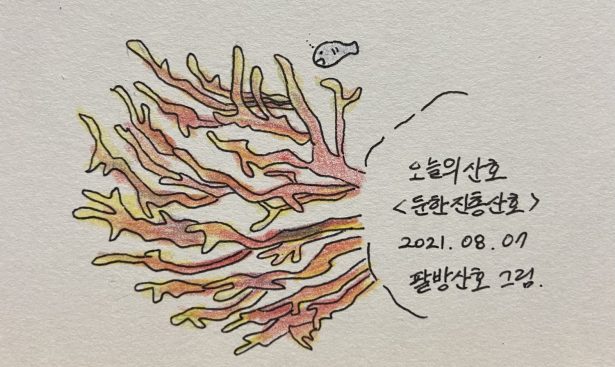 오늘의 산호
<둔한진총산호>
2021. 08. 07
팔방산호 그림.